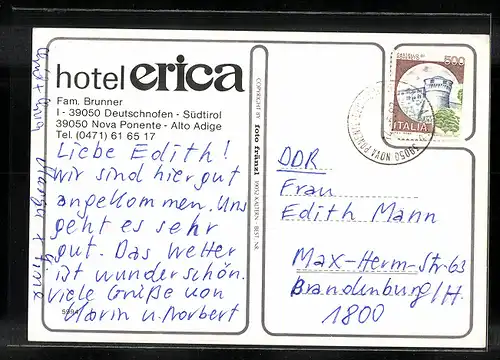 hotel erica
Fam. Brunner
I - 39050 Deutschnofen - Südtirol
39050 Nova Ponente - Alto Adige
Tel. (0471) 61 65 17
Liebe Edith!
Wir sind hier gut
angekommen. Uns
geht es sehr
gut. Das Wetter
ist wunderschön.
Viele Grüße von
Karin u. Norbert
5994
COPYRIGHT BY foto fränzl 39052 KALTERN - BEST. NR.
500
ITALIA
39050 NOVA PONENTE
DDR
Frau
Edith Mann
Max-Herm-Str. 63
Brandenburg/H.
1800